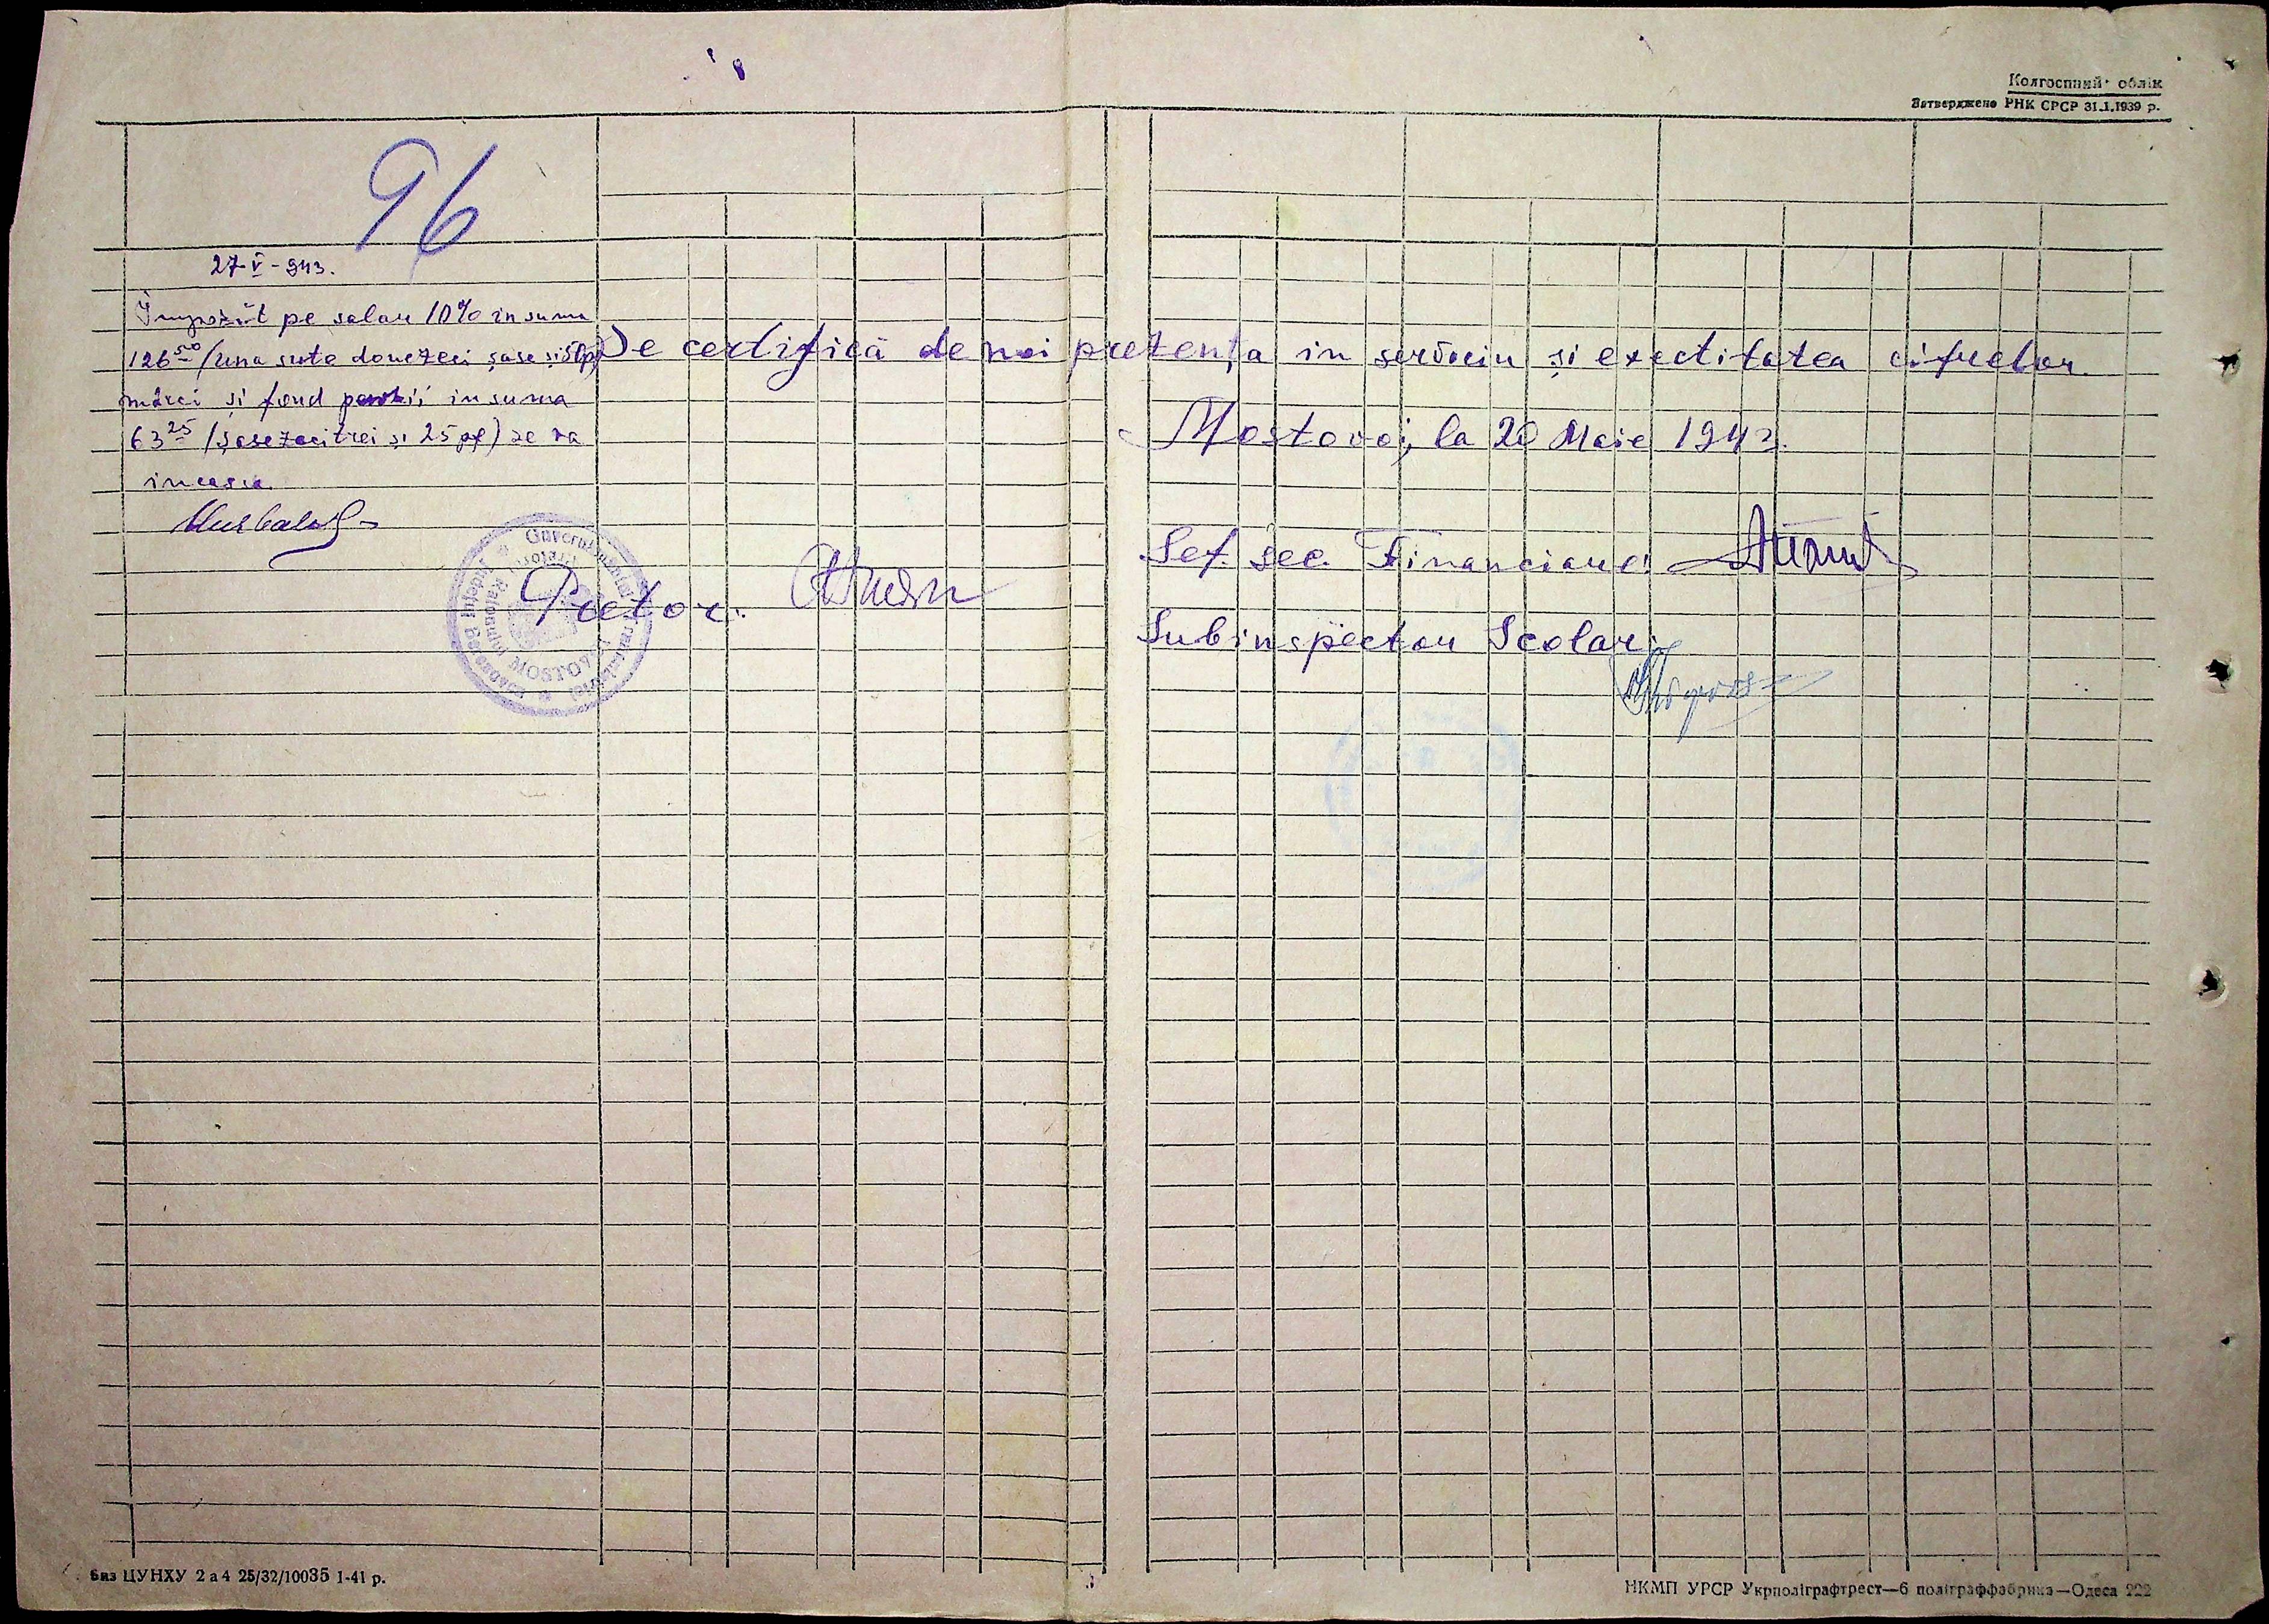 Колгоспний облік
Затверджено РНК СРСР 31.1.1939 р.
96
27-V-943.
Impozit pe salar 10% in suma
126 50 (una suta douezeci șase și 50 pf)
mărci și fond pensii in suma
63 25 (șasezeci trei și 25 pf) se va
incasa
Se certifică de noi prezența in serviciu și exectitatea cifrelor.
Mostovoi, la 20 Maie 1943.
Pretor:
Șef. sec. Financiare:
Subinspector Scolar:
Guvernământul Transnistriei
Județul Berezovca
Pretura Raionului
MOSTOVOI
Бяз ЦУНХУ 2 а 4 25/32/10035 1-41 р.
НКМП УРСР Укрполіграфтрест—6 поліграффабрика—Одеса 222